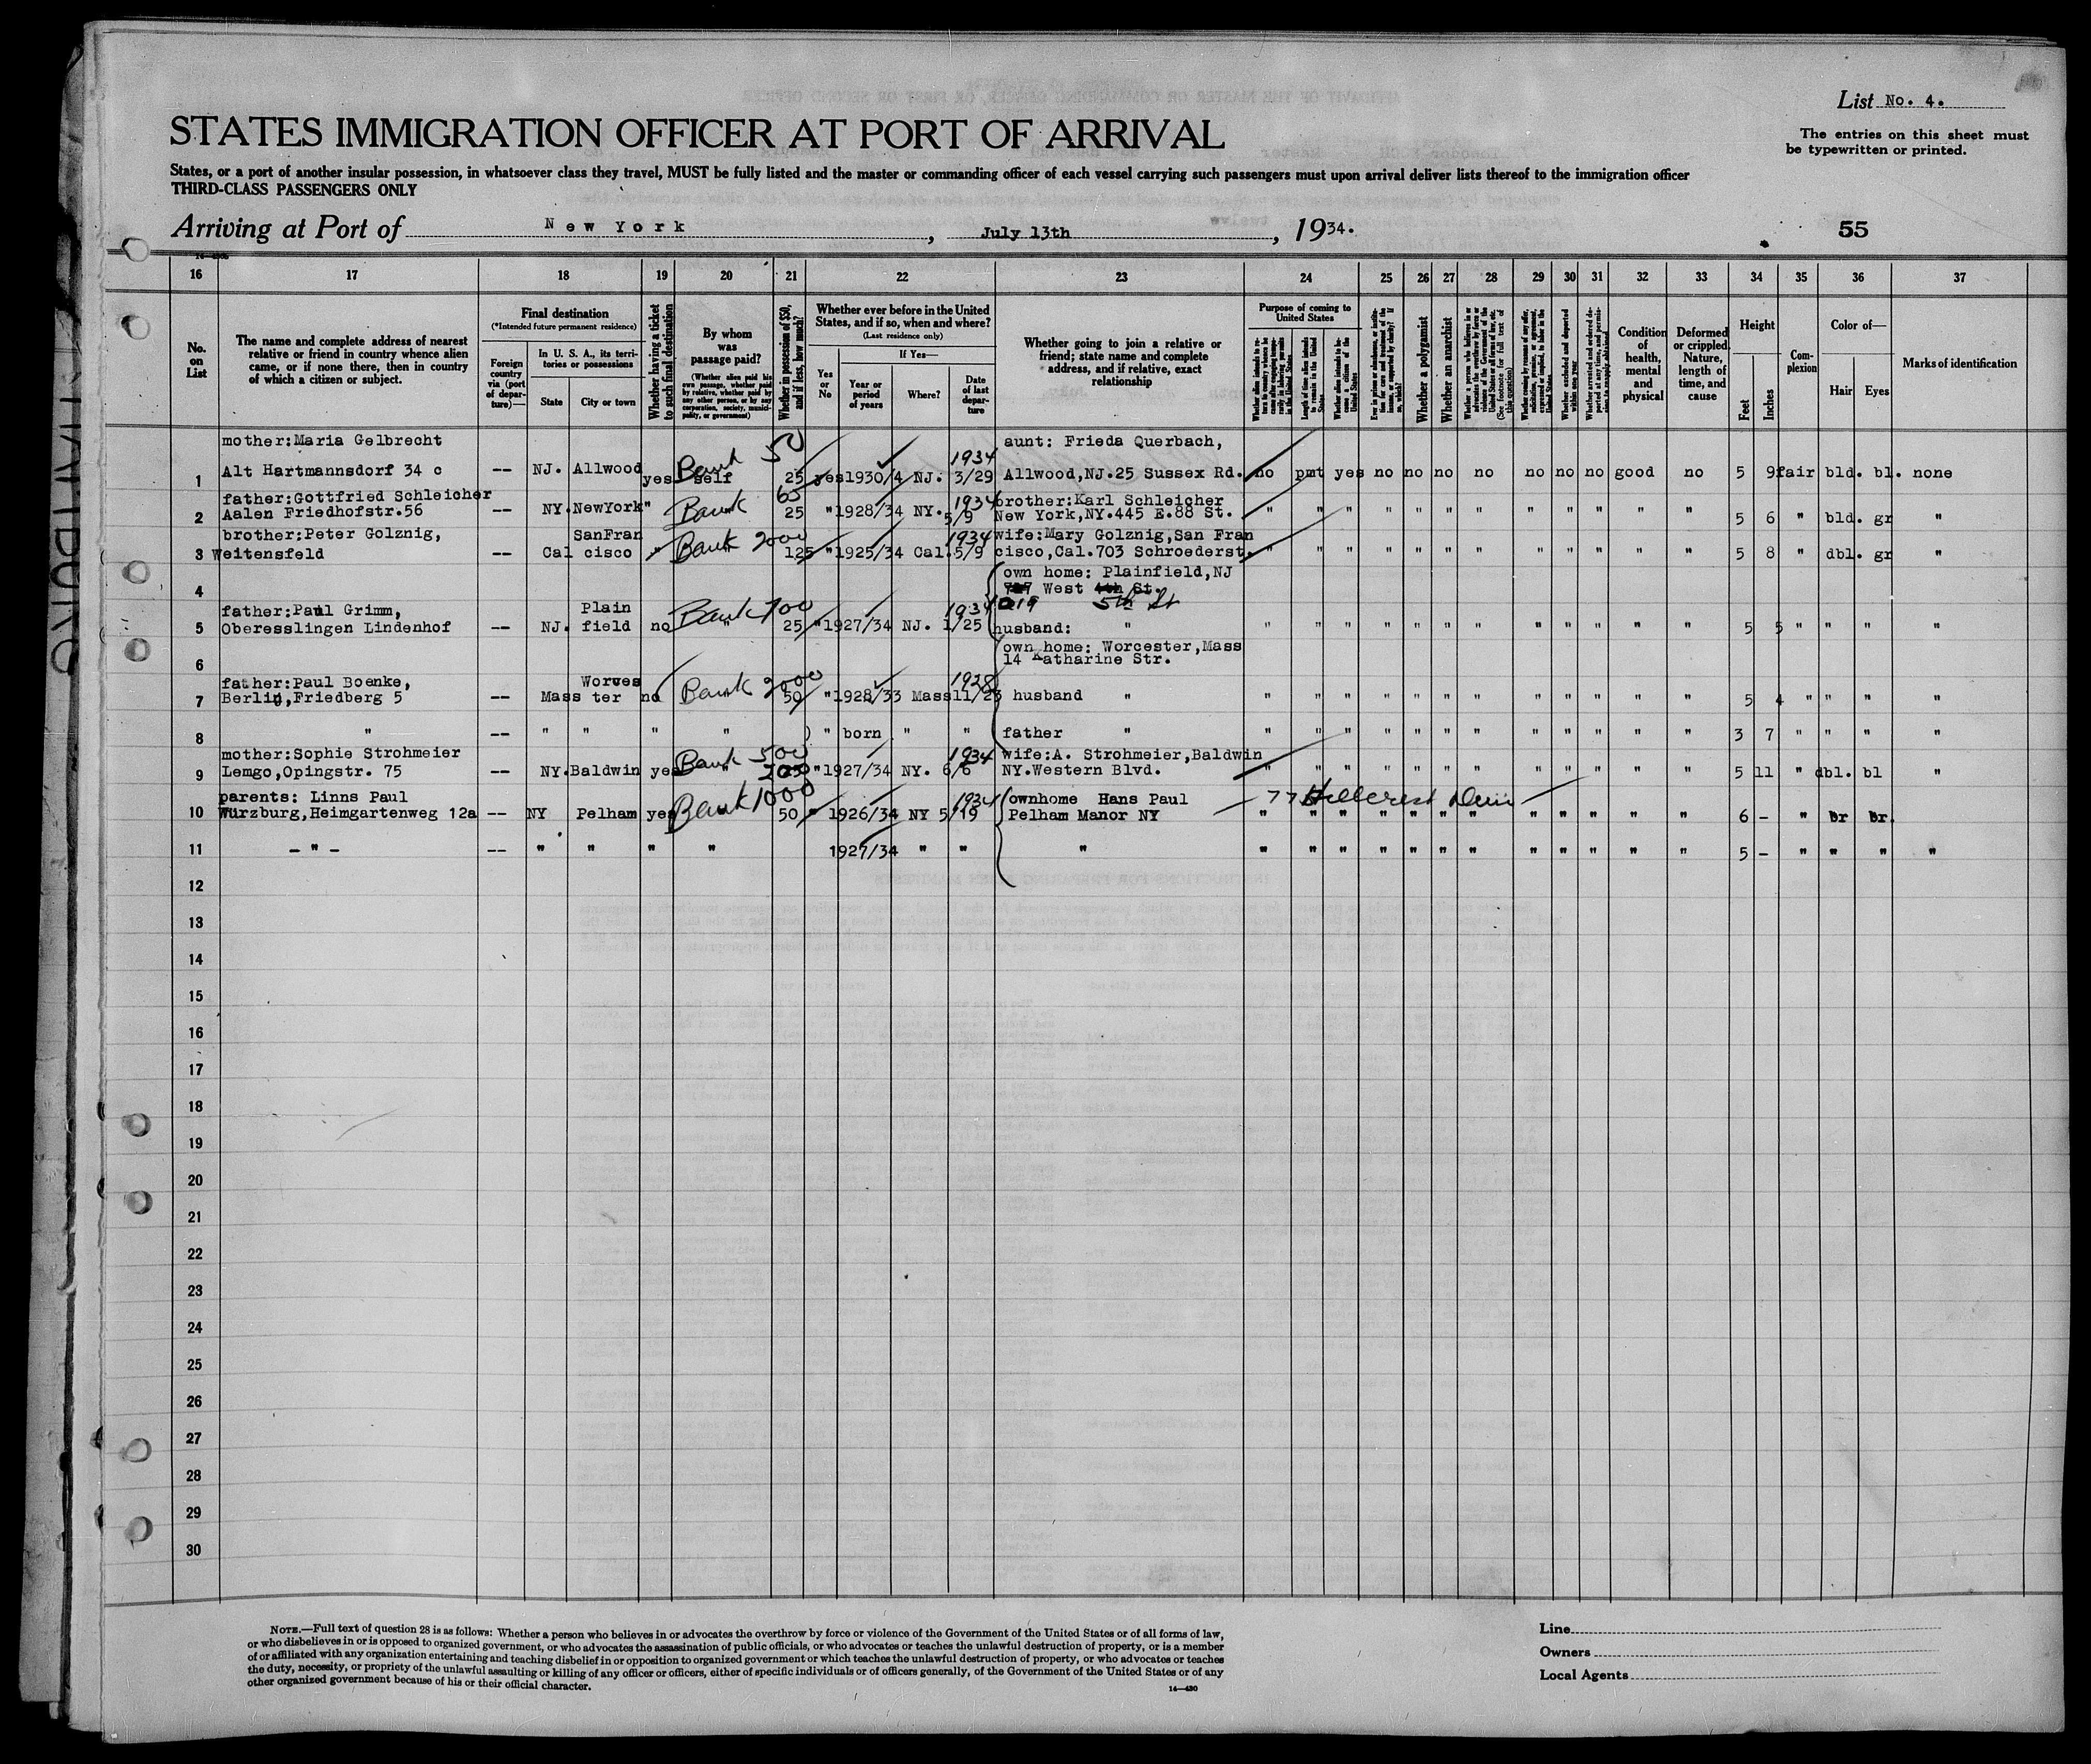 List No. 4.
STATES IMMIGRATION OFFICER AT PORT OF ARRIVAL
The entries on this sheet must
be typewritten or printed.
States, or a port of another insular possession, in whatsoever class they travel, MUST be fully listed and the master or commanding officer of each vessel carrying such passengers must upon arrival deliver lists thereof to the immigration officer
THIRD-CLASS PASSENGERS ONLY
Arriving at Port of New York, July 13th, 1934. 55
16 17 18 19 20 21 22 23 24 25 26 27 28 29 30 31 32 33 34 35 36 37
No. on List
The name and complete address of nearest
relative or friend in country whence alien
came, or if none there, then in country
of which a citizen or subject.
Final destination
(*Intended future permanent residence)
Foreign country via (port of departure)—
In U. S. A., its territories or possessions
State
City or town
Whether having a ticket to such final destination
By whom was passage paid?
(Whether alien paid his own passage, whether paid by relative, whether paid by any other person, or by any corporation, society, municipality, or government)
Whether in possession of $50, and if less, how much?
Whether ever before in the United
States, and if so, when and where?
(Last residence only)
Yes or No
If Yes—
Year or period of years
Where?
Date of last departure
Whether going to join a relative or
friend; state name and complete
address, and if relative, exact
relationship
Purpose of coming to United States
Length of time alien intends to remain in the United States
Whether alien intends to become a citizen of the United States
Whether a polygamist
Whether an anarchist
Condition of health, mental and physical
Deformed or crippled. Nature, length of time, and cause
Height
Feet
Inches
Complexion
Color of—
Hair
Eyes
Marks of identification
mother:Maria Gelbrecht aunt: Frieda Querbach,
1 Alt Hartmannsdorf 34 c -- NJ. Allwood yes Bank self 50 25 yes 1930/4 NJ. 1934 3/29 Allwood,NJ.25 Sussex Rd. no pmt yes no no no no no no no good no 5 9 fair bld. bl. none
father:Gottfried Schleicher brother:Karl Schleicher
2 Aalen Friedhofstr.56 -- NY. NewYork " Bank " 65 25 " 1928/34 NY. 1934 5/9 New York,NY.445 E.88 St. " " " " " " " " " " " " 5 6 " bld. gr "
brother:Peter Golznig, SanFran wife:Mary Golznig,San Fran
3 Weitensfeld -- Cal cisco " Bank " 2000 125 " 1925/34 Cal. 1934 5/9 cisco,Cal.703 Schroederst. " " " " " " " " " " " " 5 8 " dbl. gr "
own home: Plainfield,NJ
4 727 West 4th St.
1019 5th St
father:Paul Grimm, Plain
5 Oberesslingen Lindenhof -- NJ. field no Bank " 700 25 " 1927/34 NJ. 1934 1/25 husband: " " " " " " " " " " " " " 5 5 " " " "
own home: Worcester,Mass
6 14 Katharine Str.
father:Paul Boenke, Worces
7 Berlin,Friedberg 5 -- Mass ter no Bank " 2000 50 " 1928/33 Mass 1928 11/23 husband " " " " " " " " " " " " " 5 4 " " " "
8 " -- " " " " ) " born " " father " " " " " " " " " " " " " 3 7 " " " "
mother:Sophie Strohmeier wife:A. Strohmeier,Baldwin
9 Lemgo,Opingstr. 75 -- NY. Baldwin yes Bank " 500 " 1927/34 NY. 1934 6/6 NY.Western Blvd. " " " " " " " " " " " " 5 11 " dbl. bl "
parents: Linns Paul ownhome Hans Paul 77 Hillcrest
10 Würzburg,Heimgartenweg 12a -- NY Pelham yes Bank 1000 50 " 1926/34 NY 1934 5/19 Pelham Manor NY " " " " " " " " " " " " 6 - " br br.
11 - " - -- " " " " 1927/34 " " " " " " " " " " " " " " " " 5 - " " " "
12
13
14
15
16
17
18
19
20
21
22
23
24
25
26
27
28
29
30
NOTE.—Full text of question 28 is as follows: Whether a person who believes in or advocates the overthrow by force or violence of the Government of the United States or of all forms of law,
or who disbelieves in or is opposed to organized government, or who advocates the assassination of public officials, or who advocates or teaches the unlawful destruction of property, or is a member
of or affiliated with any organization entertaining and teaching disbelief in or opposition to organized government or which teaches the unlawful destruction of property, or who advocates or teaches
the duty, necessity, or propriety of the unlawful assaulting or killing of any officer or officers, either of specific individuals or of officers generally, of the Government of the United States or of any
other organized government because of his or their official character.
14—430
Line
Owners
Local Agents